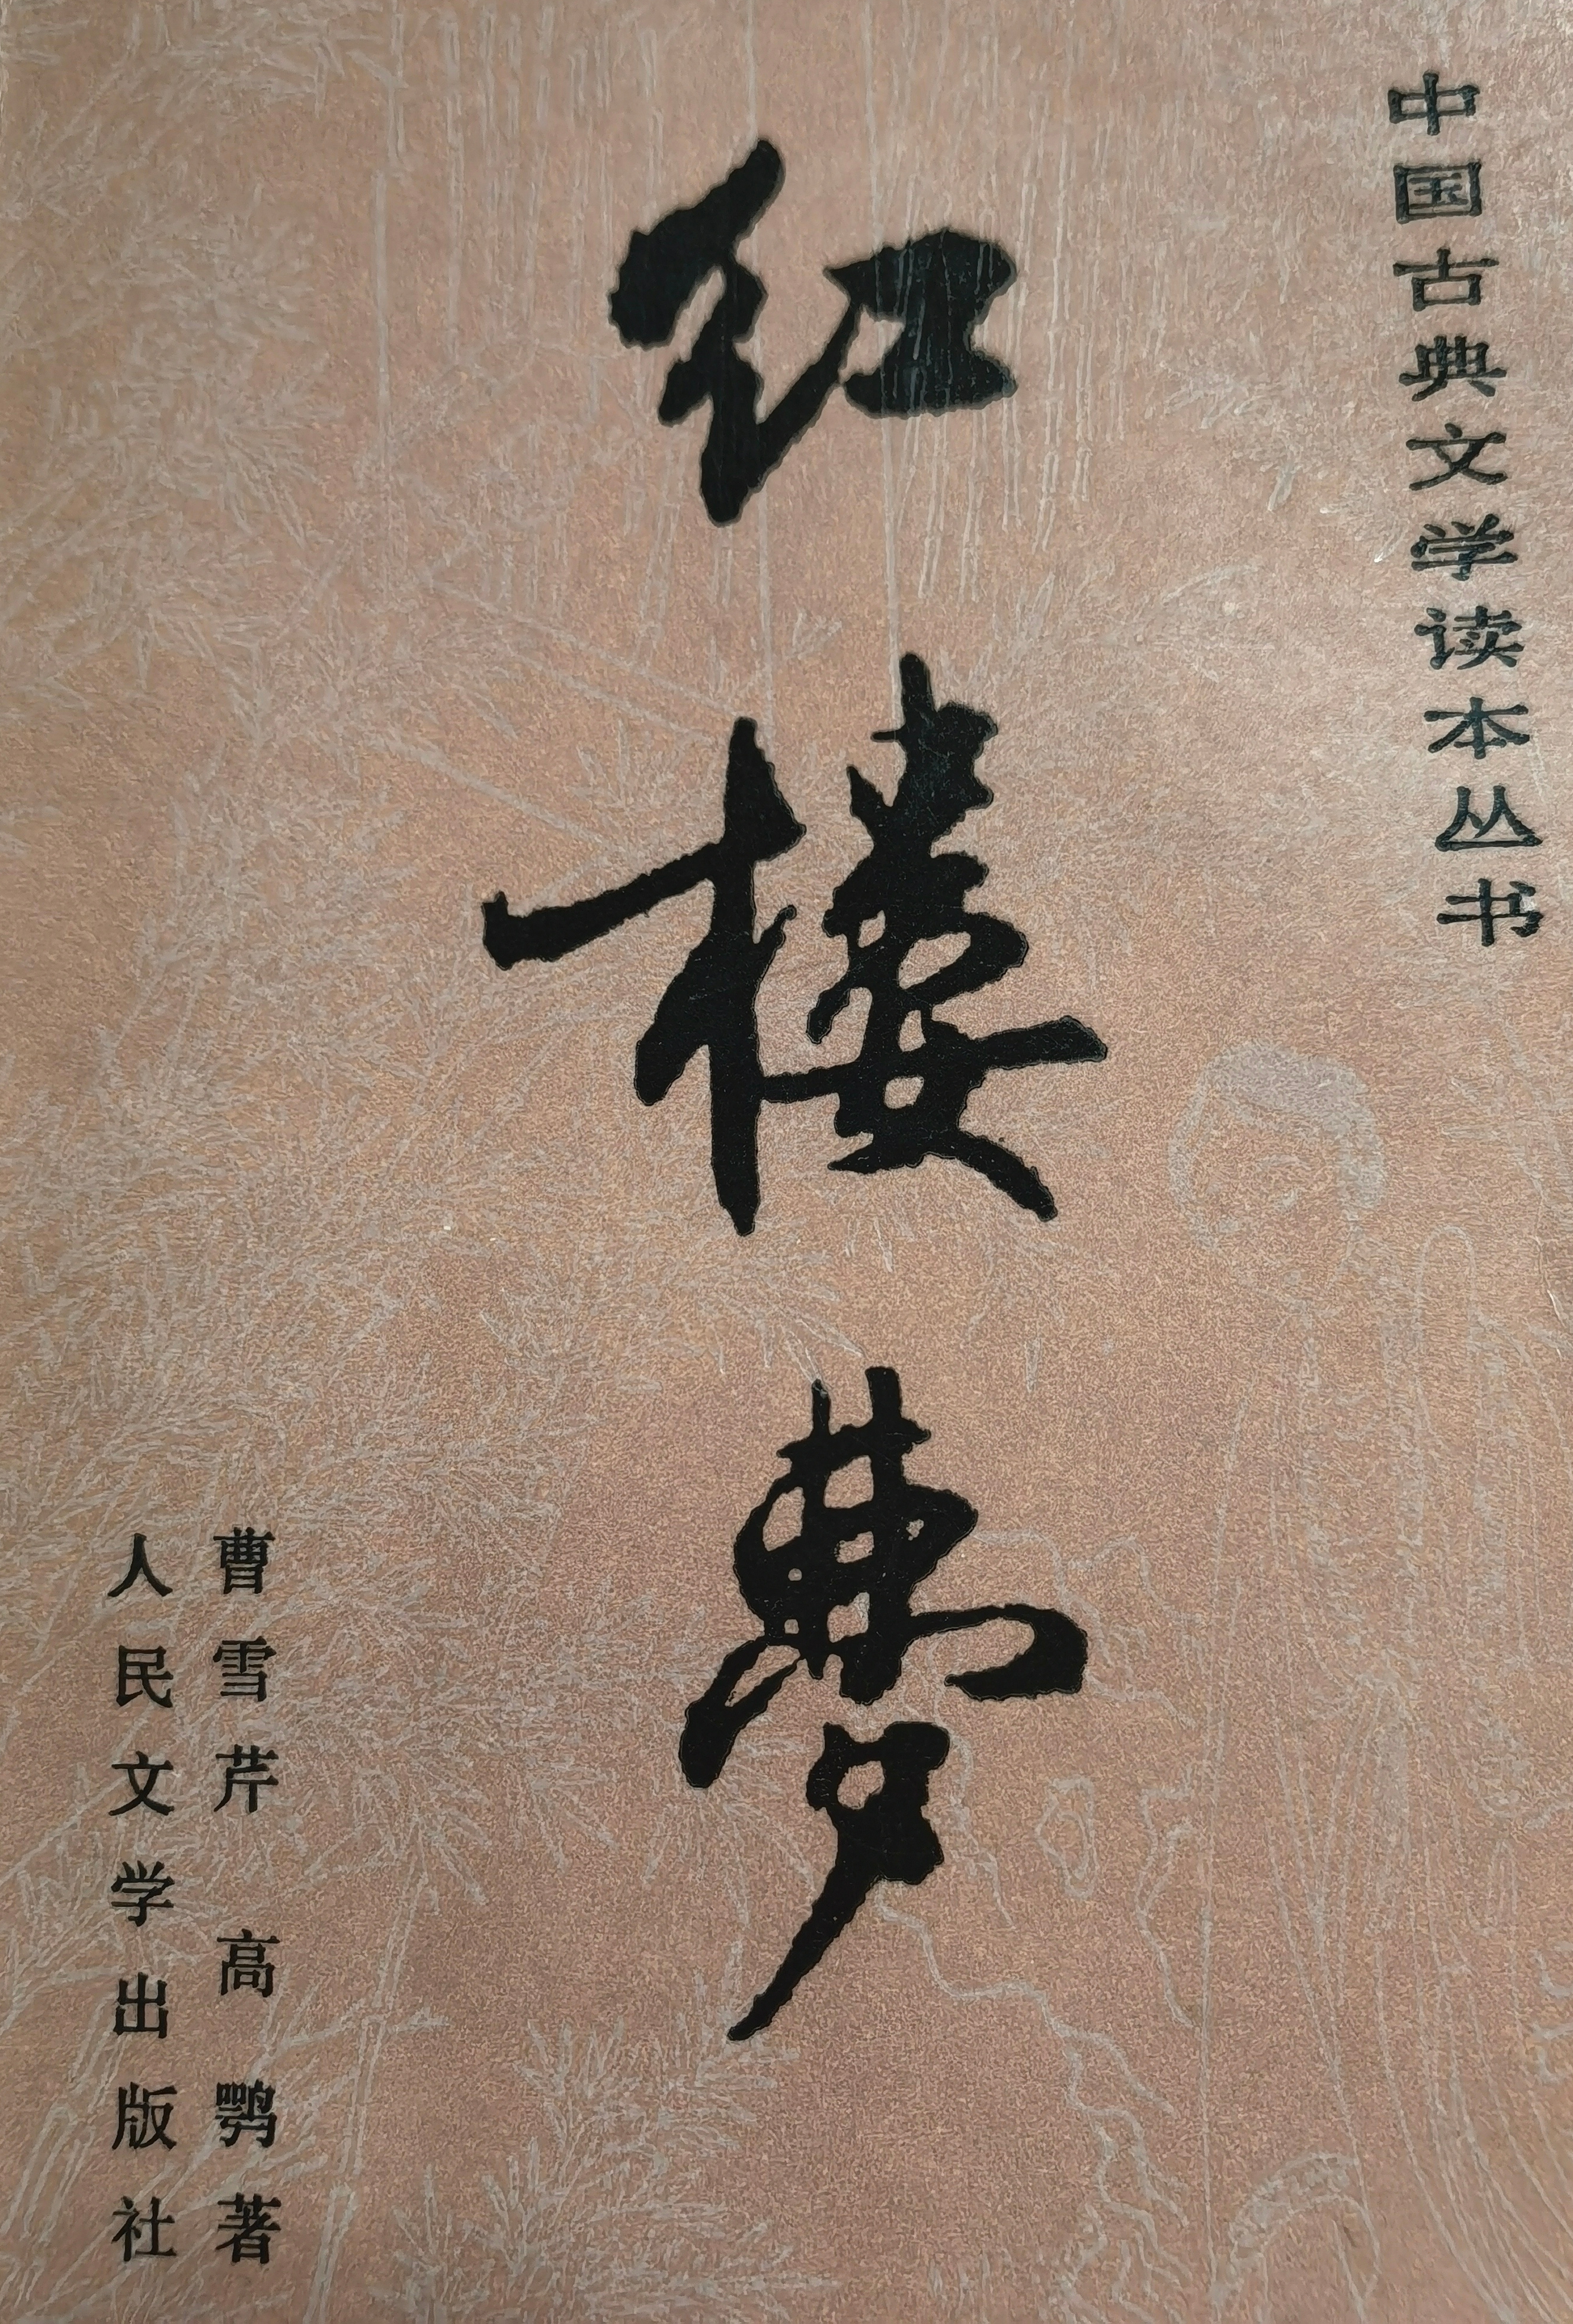 中国古典文学读本丛书
红楼梦
曹雪芹 高鹗著
人民文学出版社